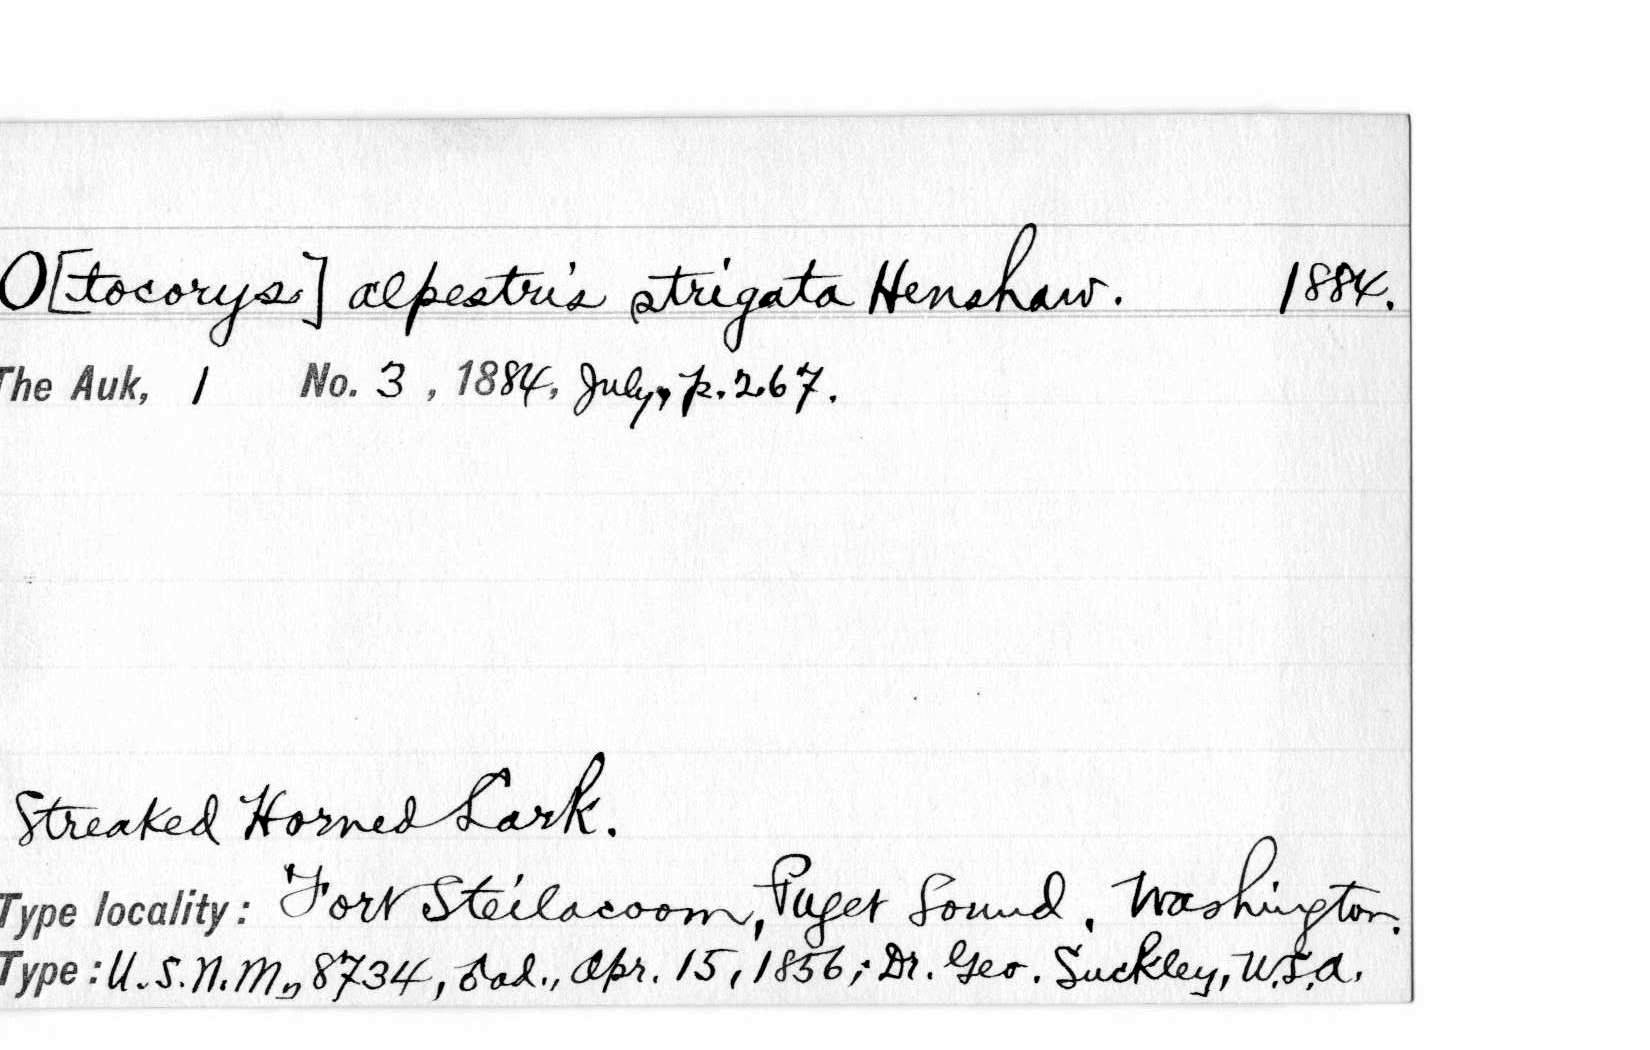 O[tocorys] alpestris strigata Henshaw. 1884.
The Auk, 1 No. 3, 1884, July, p. 267.
Streaked Horned Lark.
Type locality: Fort Steilacoom, Puget Sound, Washington.
Type: U.S.N.M., 8734, ♂ad., Apr. 15, 1856; Dr. Geo. Suckley, U.S.A.